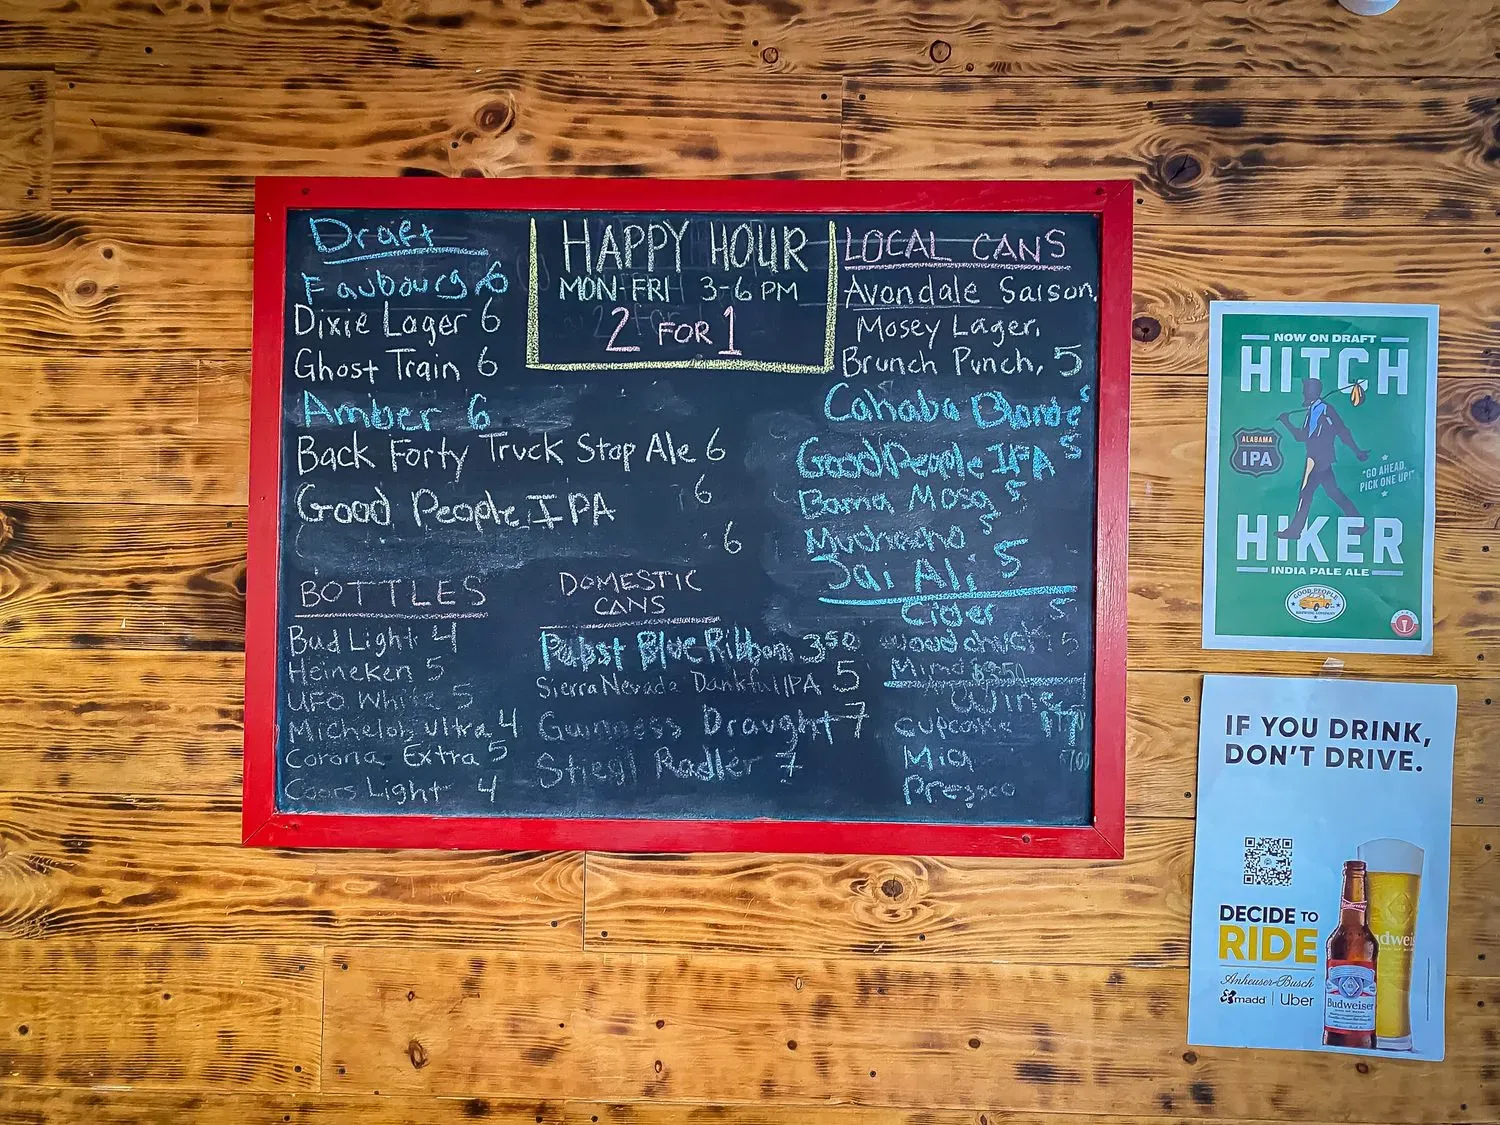 Draft
Faubourg 6
Dixie Lager 6
Ghost Train 6
Amber 6
Back Forty Truck Stop Ale 6
Good People IPA 6
6
HAPPY HOUR
MON-FRI 3-6 PM
2 FOR 1
LOCAL CANS
Avondale Saison,
Mosey Lager,
Brunch Punch, 5
Cahaba Blonde 5
Good People IPA 5
Bama Mosa 5
Muchacho 5
Jai Ali 5
Cider 5
Woodchuck 5
Wine
Cupcake
Pressco
BOTTLES
Bud Light 4
Heineken 5
UFO White 5
Michelob Ultra 4
Corona Extra 5
Coors Light 4
DOMESTIC
CANS
Pabst Blue Ribbon 350
Sierra Nevada Dankful IPA 5
Guinness Draught 7
Stiegl Radler 7
NOW ON DRAFT
HITCH
ALABAMA
IPA
"GO AHEAD,
PICK ONE UP!"
HIKER
INDIA PALE ALE
GOOD PEOPLE
BREWING COMPANY
IF YOU DRINK,
DON'T DRIVE.
DECIDE TO
RIDE
Anheuser-Busch
madd | Uber
Budweiser